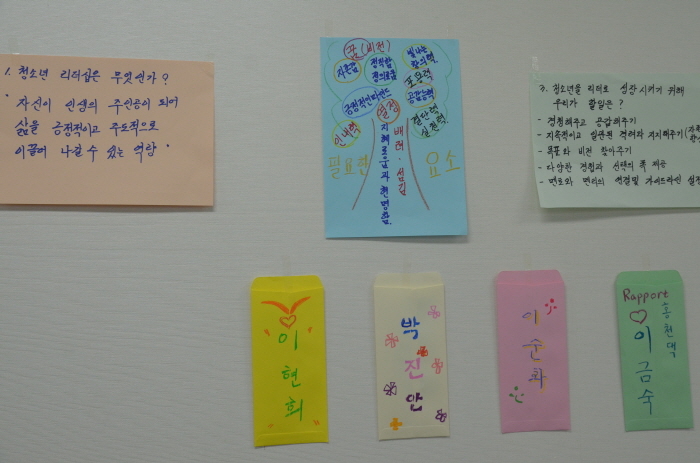 1. 청소년 리더십은 무엇인가?
" 자신이 인생의 주인공이 되어
삶을 긍정적이고 주도적으로
이끌어 나갈 수 있는 역량 "
꿈(비전)
자존감
정직함
정의로움
빛나는
창의력
포용력
긍정적인 마인드
공감능력
열정
결단력
실천력
인내력
배려·섬김
지혜로움과 현명함
필요한 요소
3. 청소년을 리더로 성장시키기 위해
우리가 할일은?
- 경청해주고 공감해주기
- 지속적이고 일관된 격려와 지지해주기
- 목표와 비전 찾아주기
- 다양한 경험과 선택의 폭 제공
- 멘토와 멘티의 연결및 가이드라인 설정
이현희
박진안
이순화
Rapport
홍천댁
이금숙